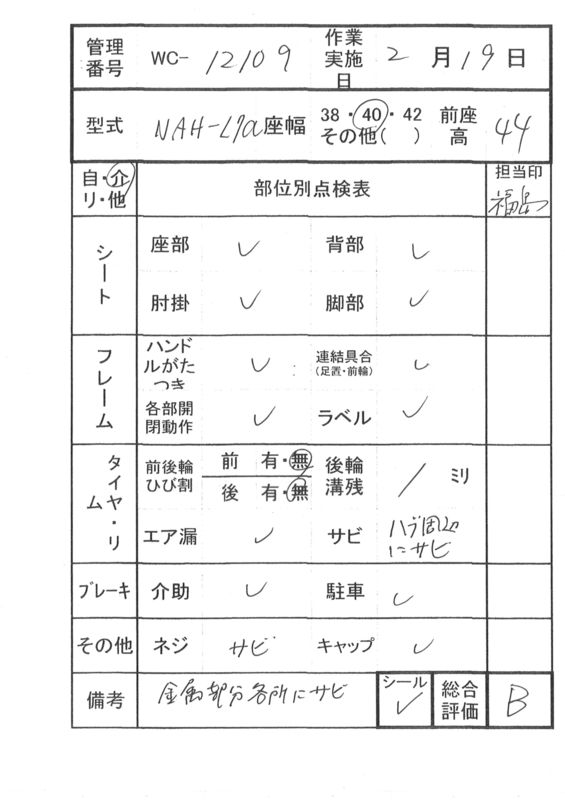 管理番号 WC- 12109 作業実施日 2 月 19 日
型式 NAH-L7a 座幅 38・40・42 その他( ) 前座高 44
自・介 リ・他 部位別点検表 担当印 福島
シート 座部 ✓ 背部 ✓
肘掛 ✓ 脚部 ✓
フレーム ハンドルがたつき ✓ 連結具合(足置・前輪) ✓
各部開閉動作 ✓ ラベル ✓
タイヤ・リム 前後輪ひび割 前 有・無 後 有・無 後輪溝残 / ミリ
エア漏 ✓ サビ ハブ周辺にサビ
ブレーキ 介助 ✓ 駐車 ✓
その他 ネジ サビ キャップ ✓
備考 金属部分各所にサビ シール ✓ 総合評価 B